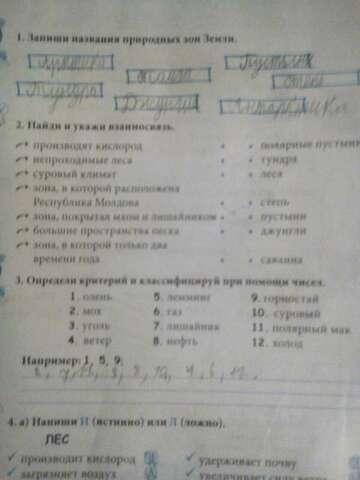 1. Запиши названия природных зон Земли.
Арктика
Пустыня
степь
Тундра
Джунгли
Антарктика
2. Найди и укажи взаимосвязь.
производят кислород • • полярные пустыни
непроходимые леса • • тундра
суровый климат • • леса
зона, в которой расположена
Республика Молдова • • степь
зона, покрытая мхом и лишайником • • пустыни
большие пространства песка • • джунгли
зона, в которой только два
времени года • • саванна
3. Определи критерий и классифицируй при помощи чисел.
1. олень 5. лемминг 9. горностай
2. мох 6. газ 10. суровый
3. уголь 7. лишайник 11. полярный мак
4. ветер 8. нефть 12. холод
Например: 1, 5, 9;
4. а) Напиши И (истинно) или Л (ложно).
ЛЕС
✓ производит кислород ✓ удерживает почву
✓ загрязняет воздух ✓ увеличивает силу ветра